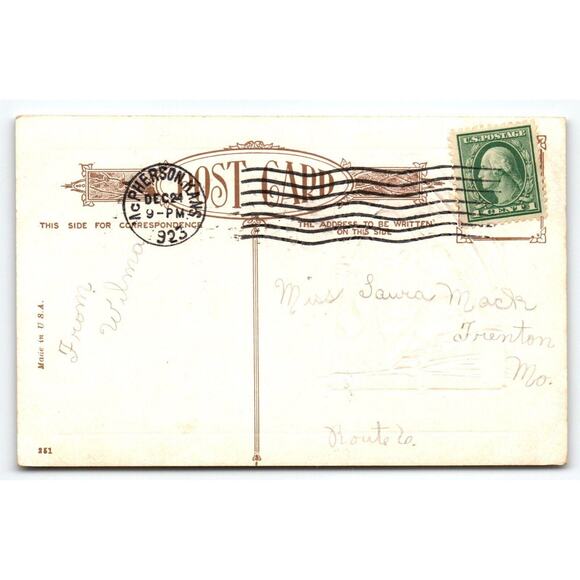 POST CARD
MCPHERSON, KANS
DEC 24
9-PM
1923
U.S. POSTAGE
1 CENT 1
THIS SIDE FOR CORRESPONDENCE
THE ADDRESS TO BE WRITTEN
ON THIS SIDE
From,
Wilma
Miss Laura Mack
Trenton
Mo.
Route 6.
Made in U.S.A.
251